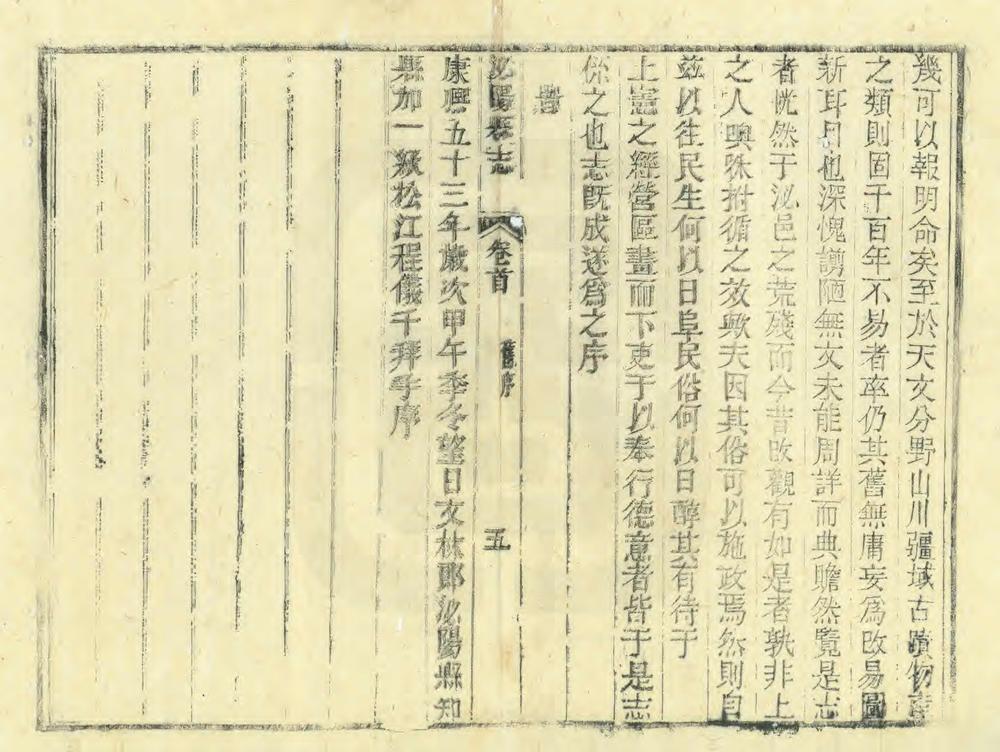 幾可以報明命矣至於天文分野山川疆域古蹟物産
之類則固千百年不易者率仍其舊無庸妄爲改易圖
新耳目也深愧謭陋無文未能周詳而典贍然覽是志
者恍然于泌邑之荒殘而今昔改觀有如是者孰非上
之人噢咻拊循之效歟夫因其俗可以施政焉然則自
茲以往民生何以日阜民俗何以日醇其有待于
上憲之經營區畫而下吏于以奉行德意者皆于是志
係之也志旣成遂爲之序
旹
泌陽縣志 卷首 舊序 五
康熙五十三年歲次甲午季冬望日文林郎泌陽縣知
縣加一級松江程儀千拜手序